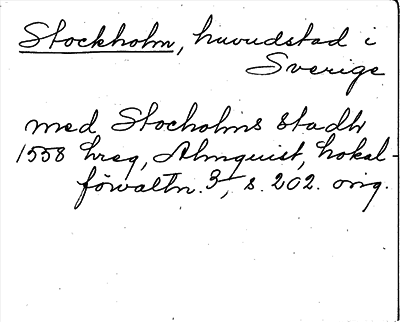 Stockholm, huvudstad i
Sverige
med Stocholms Stadh
1558 hreg, Almquist, Lokal-
förvaltn. 3, s. 202. orig.